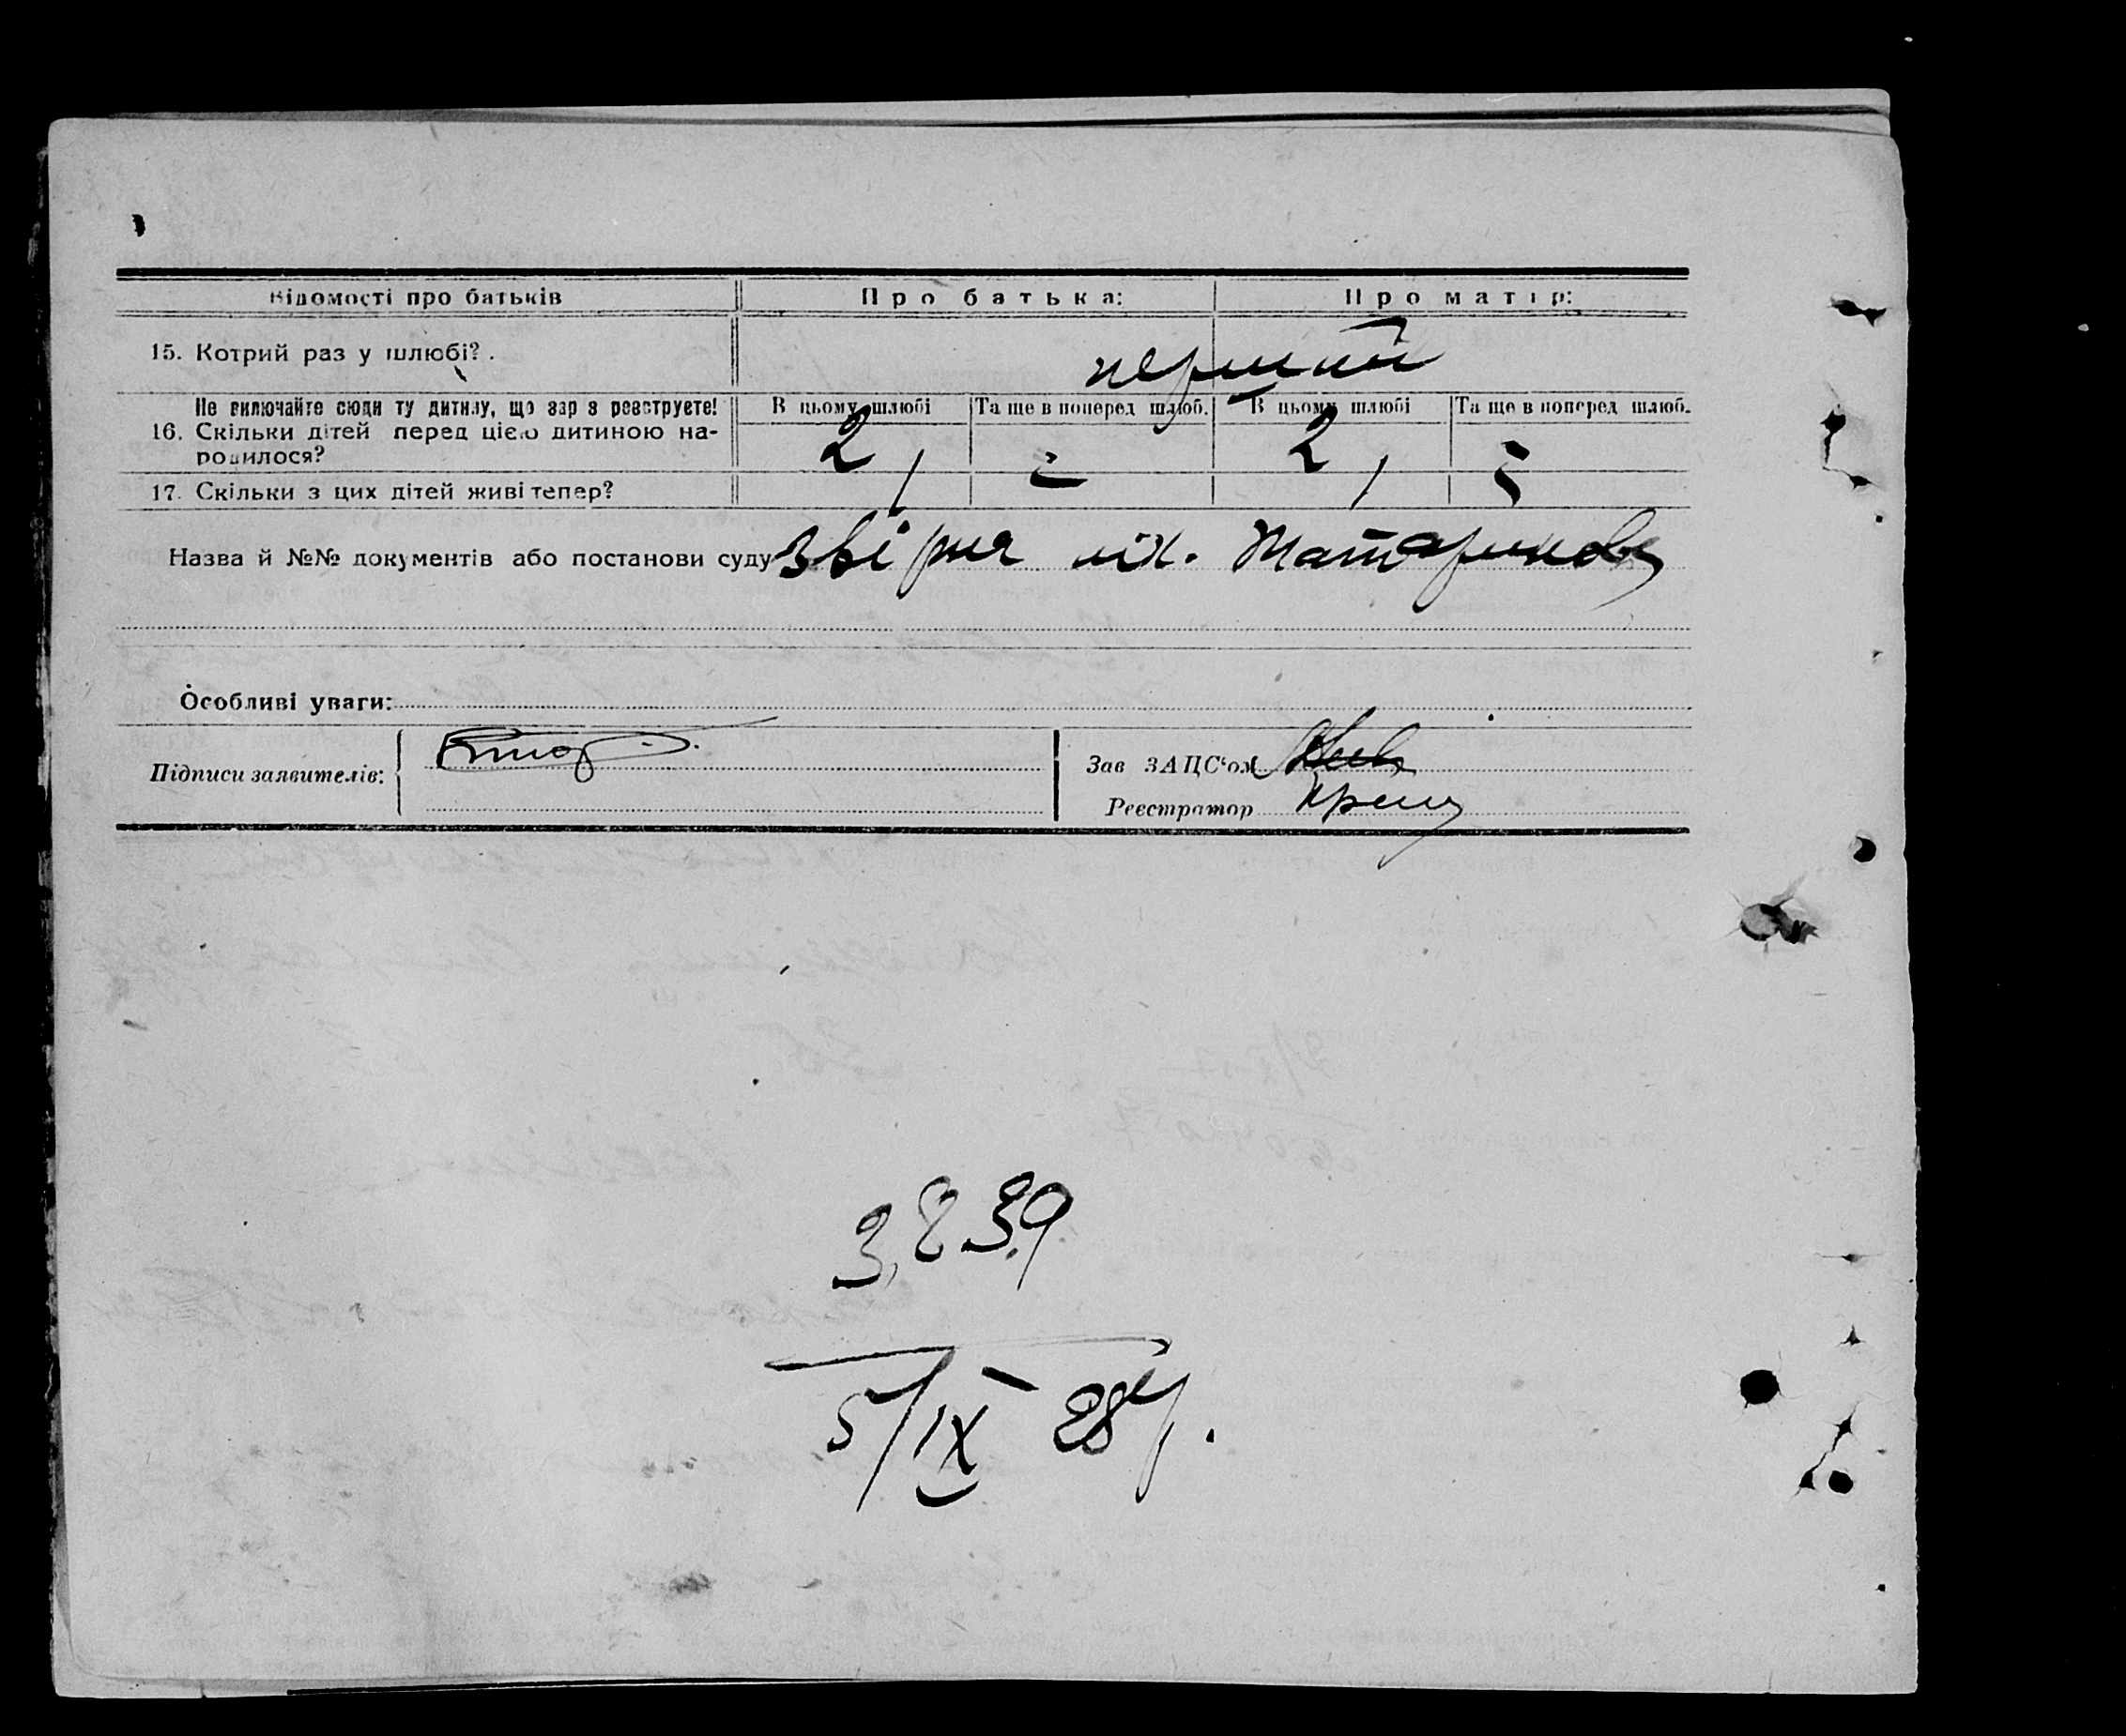 Відомості про батьків Про батька: Про матір:
15. Котрий раз у шлюбі?. перший
Не включайте сюди ту дитину, що зараз реєструєте! В цьому шлюбі Та ще в поперед шлюб. В цьому шлюбі Та ще в поперед шлюб.
16. Скільки дітей перед цією дитиною на-
родилося? 2 2
17. Скільки з цих дітей живі тепер?
Назва й №№ документів або постанови суду
Особливі уваги:
Підписи заявителів:
Зав ЗАЦС'ом
Реєстратор
3,839
5/IX - 28 р.